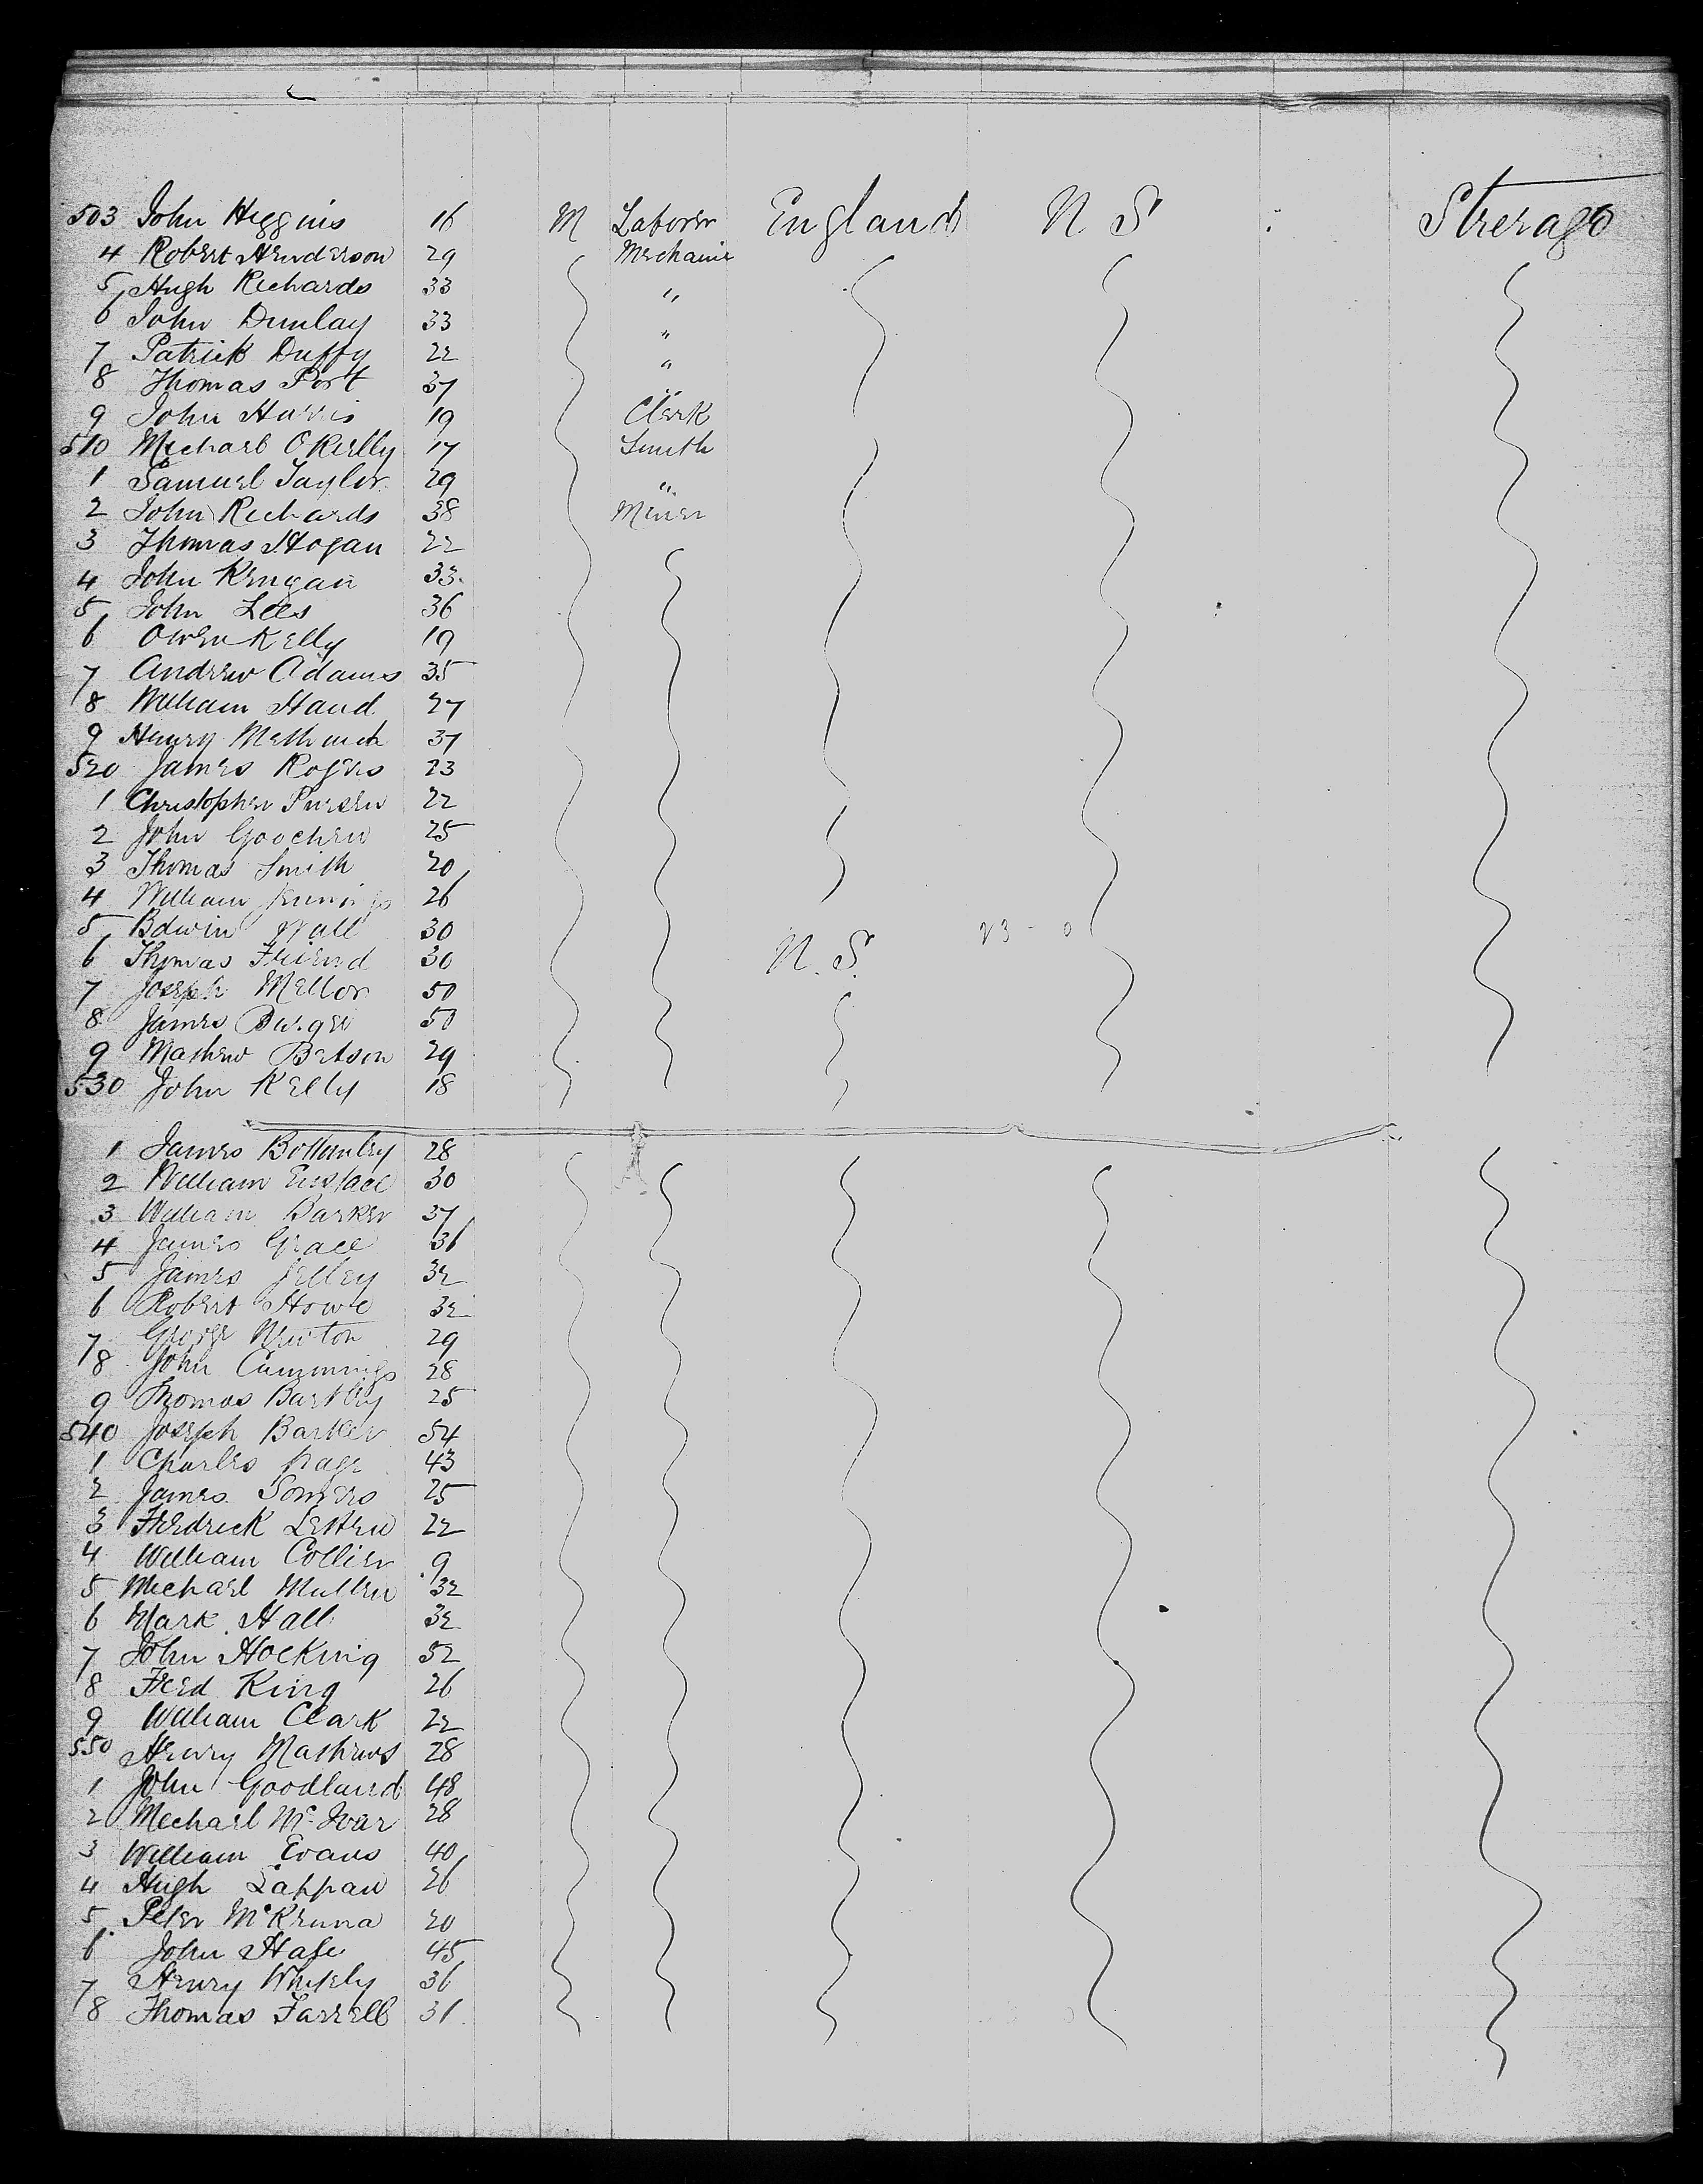 503 John Higgins 16 M Laborer England N S Steerage
4 Robert Henderson 29 Mechanic
5 Hugh Richards 33 "
6 John Dunlay 33 "
7 Patrick Duffy 22 "
8 Thomas Port 37 "
9 John Harris 19 Clerk
510 Michael OReilly 17 Smith
1 Samuel Taylor 29 "
2 John Richards 38 Miner
3 Thomas Hogan 22
4 John 33
5 John Lees 36
6 Owen Kelly 19
7 Andrew Adams 35
8 William Hand 27
9 Henry 37
520 James Rogers 23
1 Christopher 22
2 John 25
3 Thomas Smith 20
4 William Jennings 26
5 Edwin Wall 30
6 Thomas Friend 30 N. S.
7 Joseph Mellor 50
8 James 50
9 Mathew Betson 29
530 John Kelly 18
1 James Bottomley 28
2 William Eustace 30
3 William Barker 37
4 James Grace 36
5 James Jelley 32
6 Robert Howe 32
7 George Newton 29
8 John Cummings 28
9 Thomas Bartley 25
540 Joseph Barker 54
1 Charles Page 43
2 James Somers 25
3 Fredrick 22
4 William Collier 9
5 Michael Mullen 32
6 Mark Hall 32
7 John Hocking 52
8 Fred King 26
9 William Clark 22
550 Henry Mathews 28
1 John Goodland 48
2 Mechael McIvar 28
3 William Evans 40
4 Hugh Lappan 26
5 Peter McKenna 20
6 John 45
7 Henry 36
8 Thomas Farrell 31